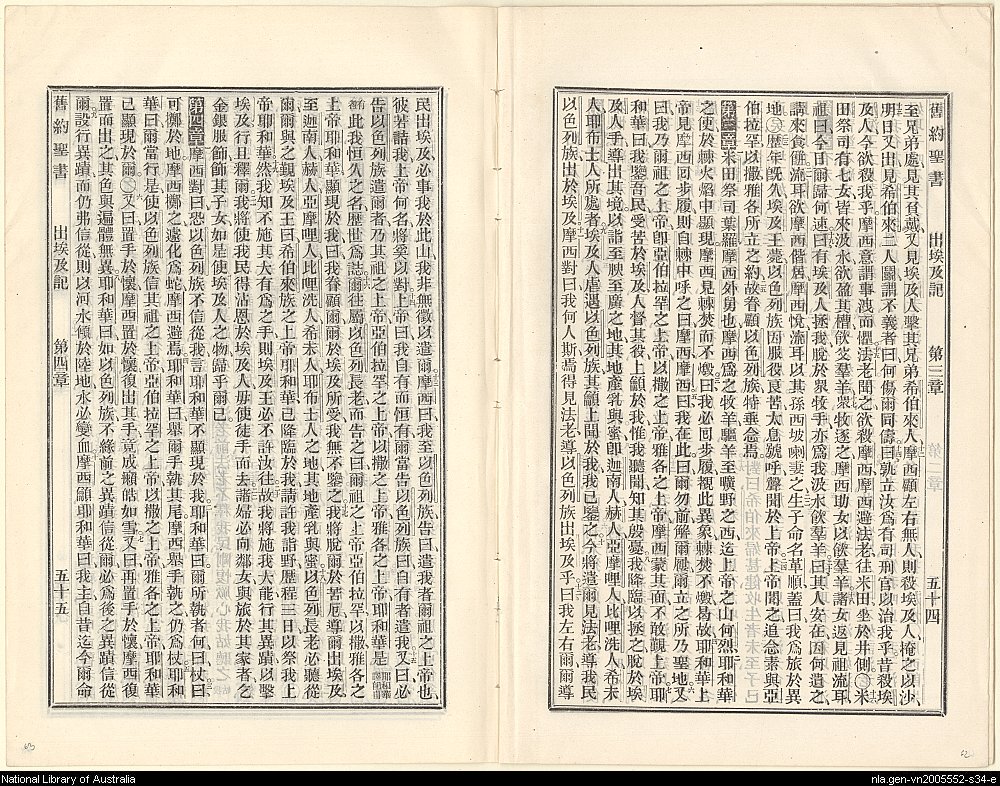 舊約聖書 出埃及記 第三章 五十四
至兄弟處見其負戴又見埃及人擊其兄弟希伯來人摩西顧左右無人則殺埃及人掩之以沙
明日又出見希伯來二人鬬謂不義者曰何傷爾同儔曰孰立汝為有司刑官以治我乎昔殺埃
及人今欲殺我乎摩西意謂事洩而懼法老聞之欲殺摩西摩西避法老往米田坐於井側米
田祭司有七女皆來汲水欲盈其槽飲父羣羊衆牧逐之摩西助女以飲羣羊諸女返見祖流耳
祖曰今日爾歸何速曰有埃及人拯我脫於衆牧手亦為我汲水飲羣羊曰其人安在因何遺之
請來食餅流耳欲摩西偕居摩西悅流耳以其孫西坡喇妻之生子命名革順蓋曰我為旅於異
地歷年旣久埃及王薨以色列族因服役艮苦太息號呼聲聞於上帝上帝聞之追念素與亞
伯拉罕以撒雅各所立之約故眷顧以色列族特垂念焉
第三章米田祭司葉羅摩西外舅也摩西為之牧羊驅羊至曠野之西迄上帝之山何烈耶和華
之使於棘火焰中顯現摩西見棘焚而不燬曰我必回步履視此異象棘焚不燬曷故耶和華上
帝見摩西回步履則自棘中呼之曰摩西摩西曰我在此曰爾勿前解爾屨爾立之所乃聖地又
曰我乃爾祖之上帝卽亞伯拉罕之上帝以撒之上帝雅各之上帝摩西蒙其面不敢覲上帝耶
和華曰我鑒吾民受苦於埃及人督其役上籲於我惟我聽聞知其殷憂我降臨以拯之脫於埃
及人手導出其境以詣至腴至廣之地其地產乳與蜜卽迦南人赫人亞摩哩人比哩洗人希未
人耶布士人所處者埃及人虐遇以色列族其籲上聞於我我已鑒之今將遣爾見法老導我民
以色列族出於埃及摩西對曰我何人斯焉得見法老導以色列族出埃及乎曰我左右爾爾導
民出埃及必事我於此山我非無徵以遣爾摩西曰我至以色列族告曰遣我者爾祖之上帝也
彼若詰我上帝何名將奚以對上帝曰我自有而恒有爾當告以色列族曰自有者遣我又曰必
告以色列族遣爾者乃其祖之上帝亞伯拉罕之上帝以撒之上帝雅各之上帝耶和華是
此我恒久之名歷世為誌爾往厲以色列長老而告之曰爾祖之上帝亞伯拉罕以撒雅各之
上帝耶和華顯現於我曰我眷顧爾爾於埃及所受者我無不鑒之我將脫爾於苦厄導爾出埃及
至迦南人赫人亞摩哩人比哩洗人希未人耶布士人之地其地產乳與蜜以色列長老必聽從
爾爾與之覲埃及王曰希伯來族之上帝耶和華已降臨於我請許我詣野歷程三日以祭我上
帝耶和華然我知不施其大有為之手則埃及王必不許汝往故我將施我大能行其異蹟以擊
埃及行且釋爾我將使我民得沾恩於埃及人毋使徒手而去諸婦必向鄰女與旅於其家者之
金銀服飾飾其子女如是使埃及人之物歸乎爾已
第四章摩西對曰恐以色列族不信從我言耶和華不顯現於我耶和華曰爾所執者何曰杖曰
可擲於地摩西擲之遽化為蛇摩西避焉耶和華曰舉爾手執其尾摩西舉手執之仍為杖耶和
華曰爾當行是使以色列族信其祖之上帝亞伯拉罕之上帝以撒之上帝雅各之上帝耶和華
已顯現於爾又曰置手於懷摩西置於懷復出其手竟成癩皓如雪又曰再置手於懷摩西復
置而出之其色與遍體無異耶和華曰如以色列族不緣前之異蹟信從爾必為後之異蹟信從
爾設行異蹟而仍弗信從則以河水傾於陸地水必變血摩西籲耶和華曰我主自昔迄今爾命
舊約聖書 出埃及記 第四章 五十五
National Library of Australia
nla.gen-vn2005552-s34-e